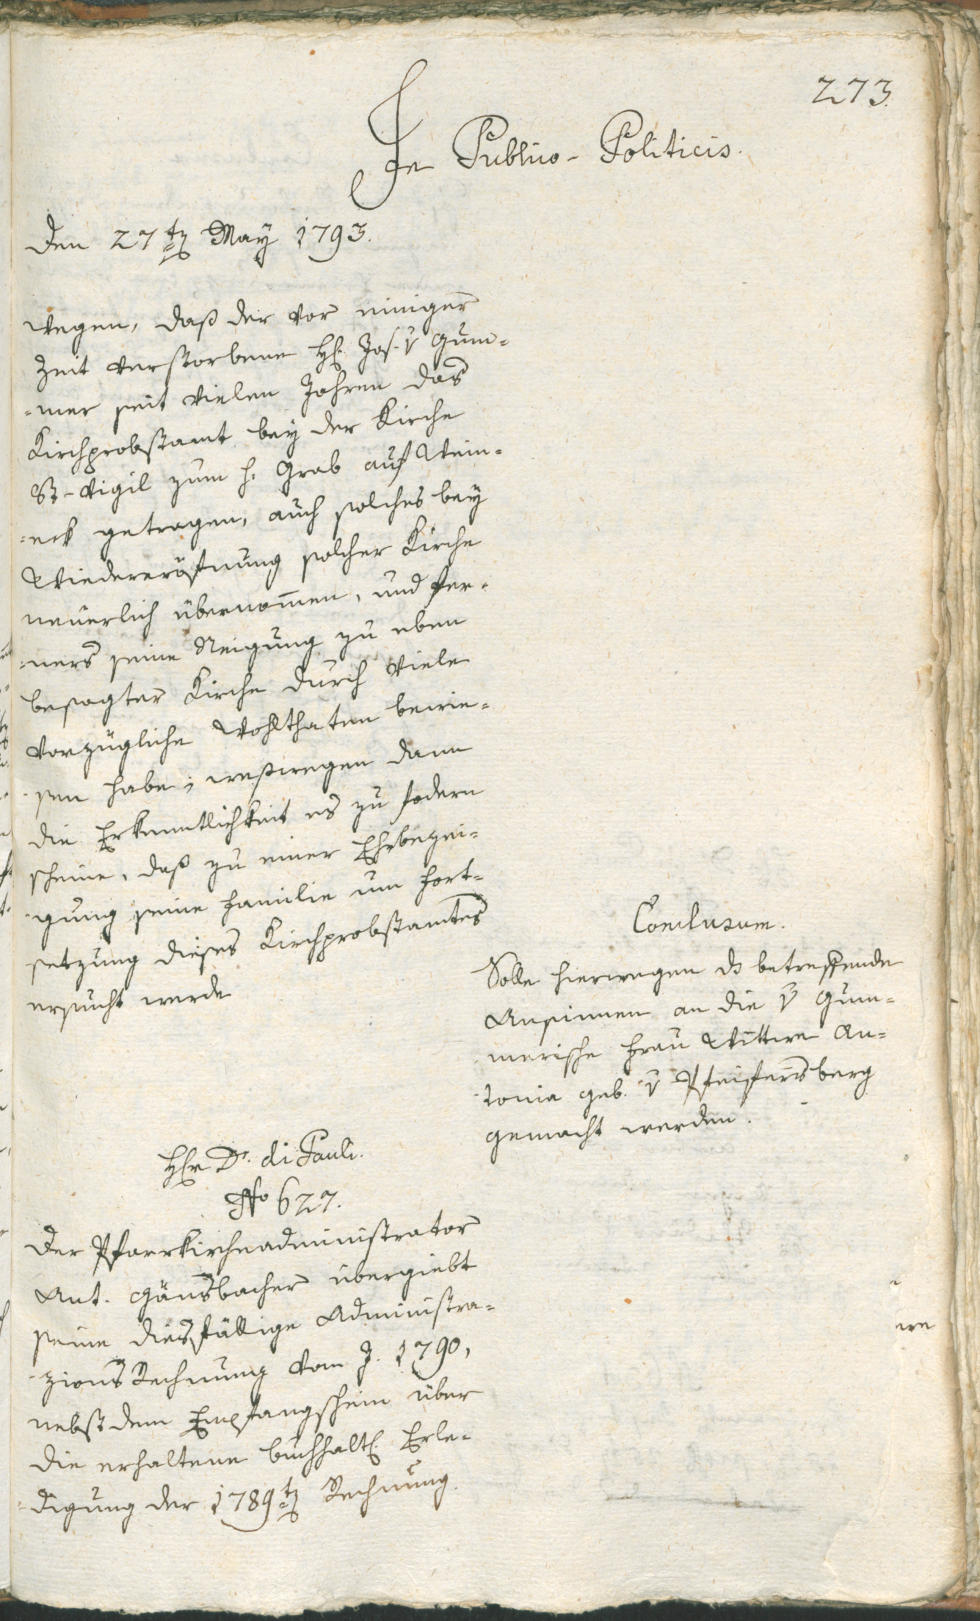 273.
In Publico-Politicis.
Den 27ten May 1793.
Wegen, daß der vor einiger
Zeit verstorbene H. Jos. v Gum-
-mer seit vielen Jahren das
Kirchprobstamt bey der Kirche
St. Vigil zum h. Grab auf Wein-
-eck getragen, auch solches bey
Wiedereröfnung solcher Kirche
neuerlich übernommen, und fer-
-ners seine Neigung zu eben
besagter Kirche durch viele
vorzügliche Wohlthaten bewie-
-sen habe; weßwegen dann
die Erkenntlichkeit es zu fodern
scheine, daß zu einer Ehrbezei-
-gung seine Familie um Fort-
setzung dieses Kirchprobstamtes
ersucht werde
Conclusum.
Solle hierwegen das betreffende
Ansinnen an die v Gum-
-merische Frau Wittwe An-
-tonia geb. v Pfeifersberg
gemacht werden.
Hhr Dr. di Pauli.
No 627.
Der Pfarrkirchenadministrator
Ant. Gänsbacher übergiebt
seine diesfällige Administra-
-zions Rechnung vom J. 1790,
nebst dem Empfangschein über
die erhaltene buchhalt. Erle-
-digung der 1789ten Rechnung.